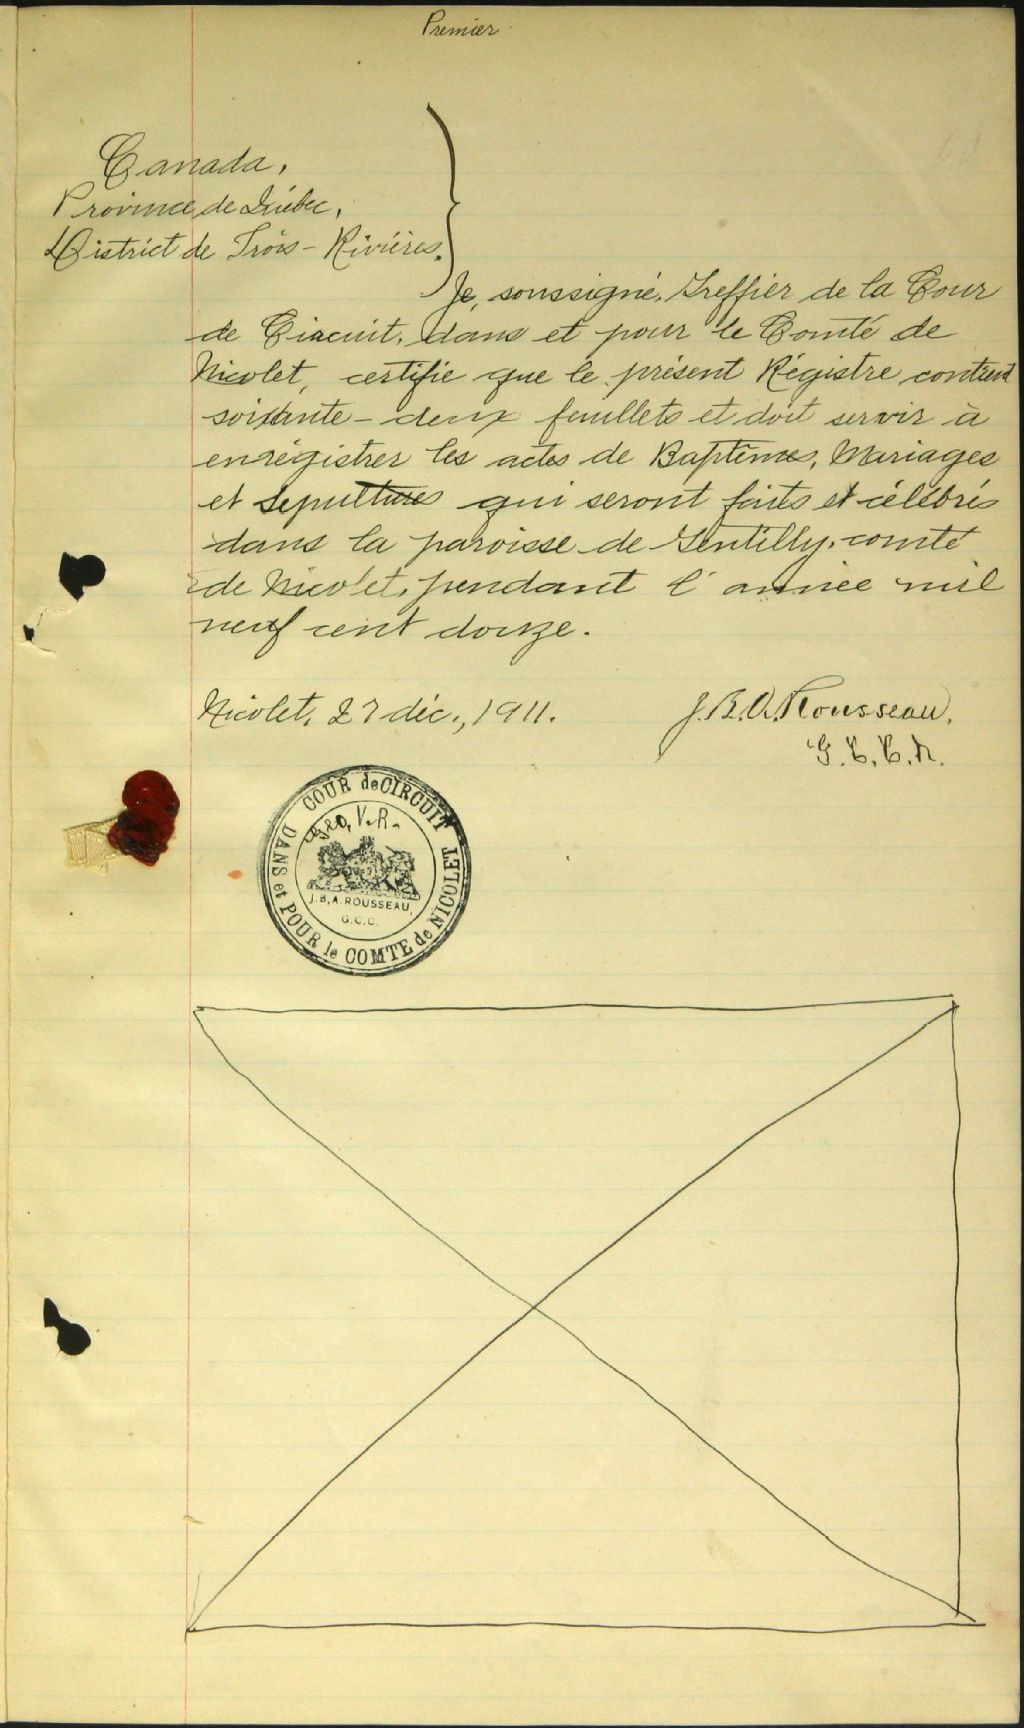 Premier
Canada,
Province de Québec,
District de Trois-Rivières.
Je, soussigné, Greffier de la Cour
de Circuit, dans et pour le Comté de
Nicolet, certifie que le présent Régistre contient
soixante-deux feuillets et doit servir à
enrégistrer les actes de Baptêmes, Mariages
et Sépultures qui seront faits et célébrés
dans la paroisse de Gentilly, comté
de Nicolet, pendant l'année mil
neuf cent douze.
Nicolet, 27 déc., 1911.
J.B.A. Rousseau,
G.C.C.N.
COUR de CIRCUIT DANS et POUR le COMTE de NICOLET
Geo. V.R.
J.B.A. ROUSSEAU,
G.C.C.